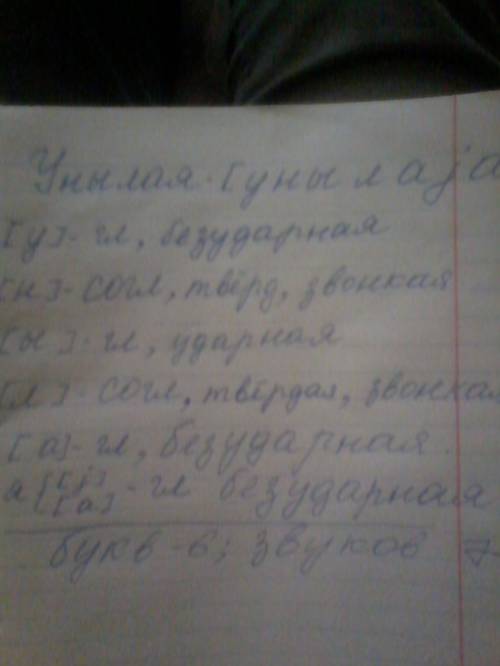 Унылая - [унылаjа
[у] - гл, безударная
[н] - согл, твёрд, звонкая
[ы] - гл, ударная
[л] - согл, твёрдая, звонкая
[а] - гл, безударная.
я {[j] [а] - гл безударная
букв - 6; звуков 7